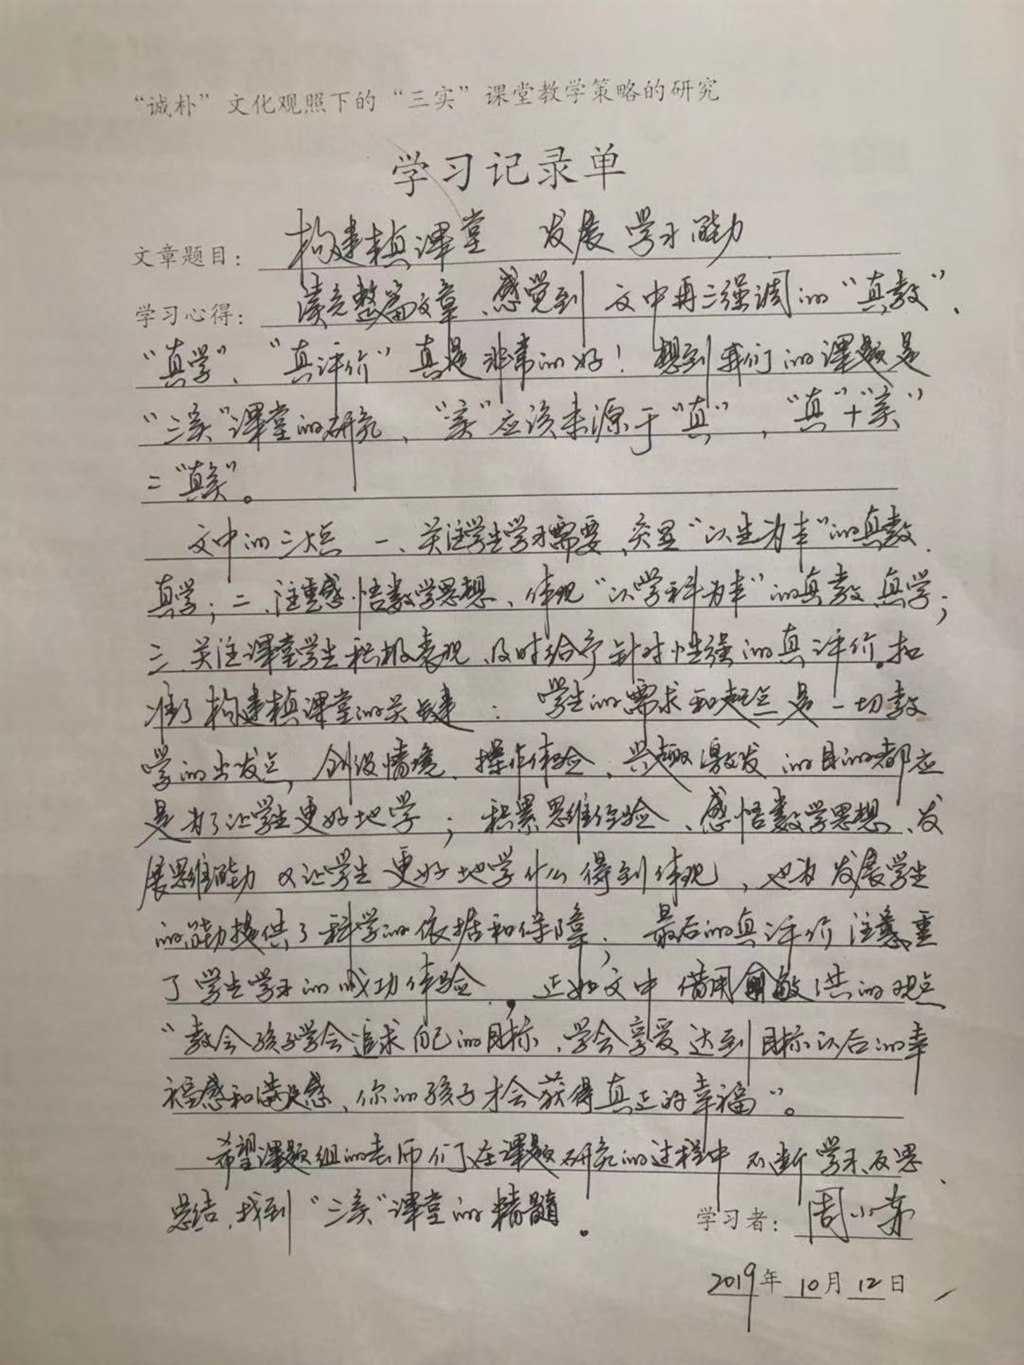 “诚朴”文化观照下的“三实”课堂教学策略的研究
学习记录单
文章题目：构建真课堂 发展学习能力
学习心得：读完整篇文章、感觉到文中再三强调的“真教”、
“真学”、“真评价”真是非常的好！想到我们的课题是
“三实”课堂的研究、“实”应该来源于“真”，“真”+“实”
=“真实”。
文中的三点 一、关注学生学习需要，突显“以生为本”的真教、
真学；二、注重感悟数学思想、体现“以学科为本”的真教、真学；
三、关注课堂学生积极表现、及时给予针对性强的真评价。扣
准了构建真课堂的关键：学生的需求和起点是一切教
学的出发点，创设情境、操作体验、兴趣激发的目的都应
是为了让学生更好地学；积累思维经验、感悟数学思想、发
展思维能力又让学生更好地学什么得到体现，也为发展学生
的能力提供了科学的依据和保障；最后的真评价注重
了学生学习的成功体验，正如文中借用俞敏洪的观点
“教会孩子学会追求自己的目标、学会享受达到目标以后的幸
福感和满足感、你的孩子才会获得真正的幸福”。
希望课题组的老师们在课题研究的过程中不断学习、反思、
总结，找到“三实”课堂的精髓。
学习者：周小
2019年10月12日